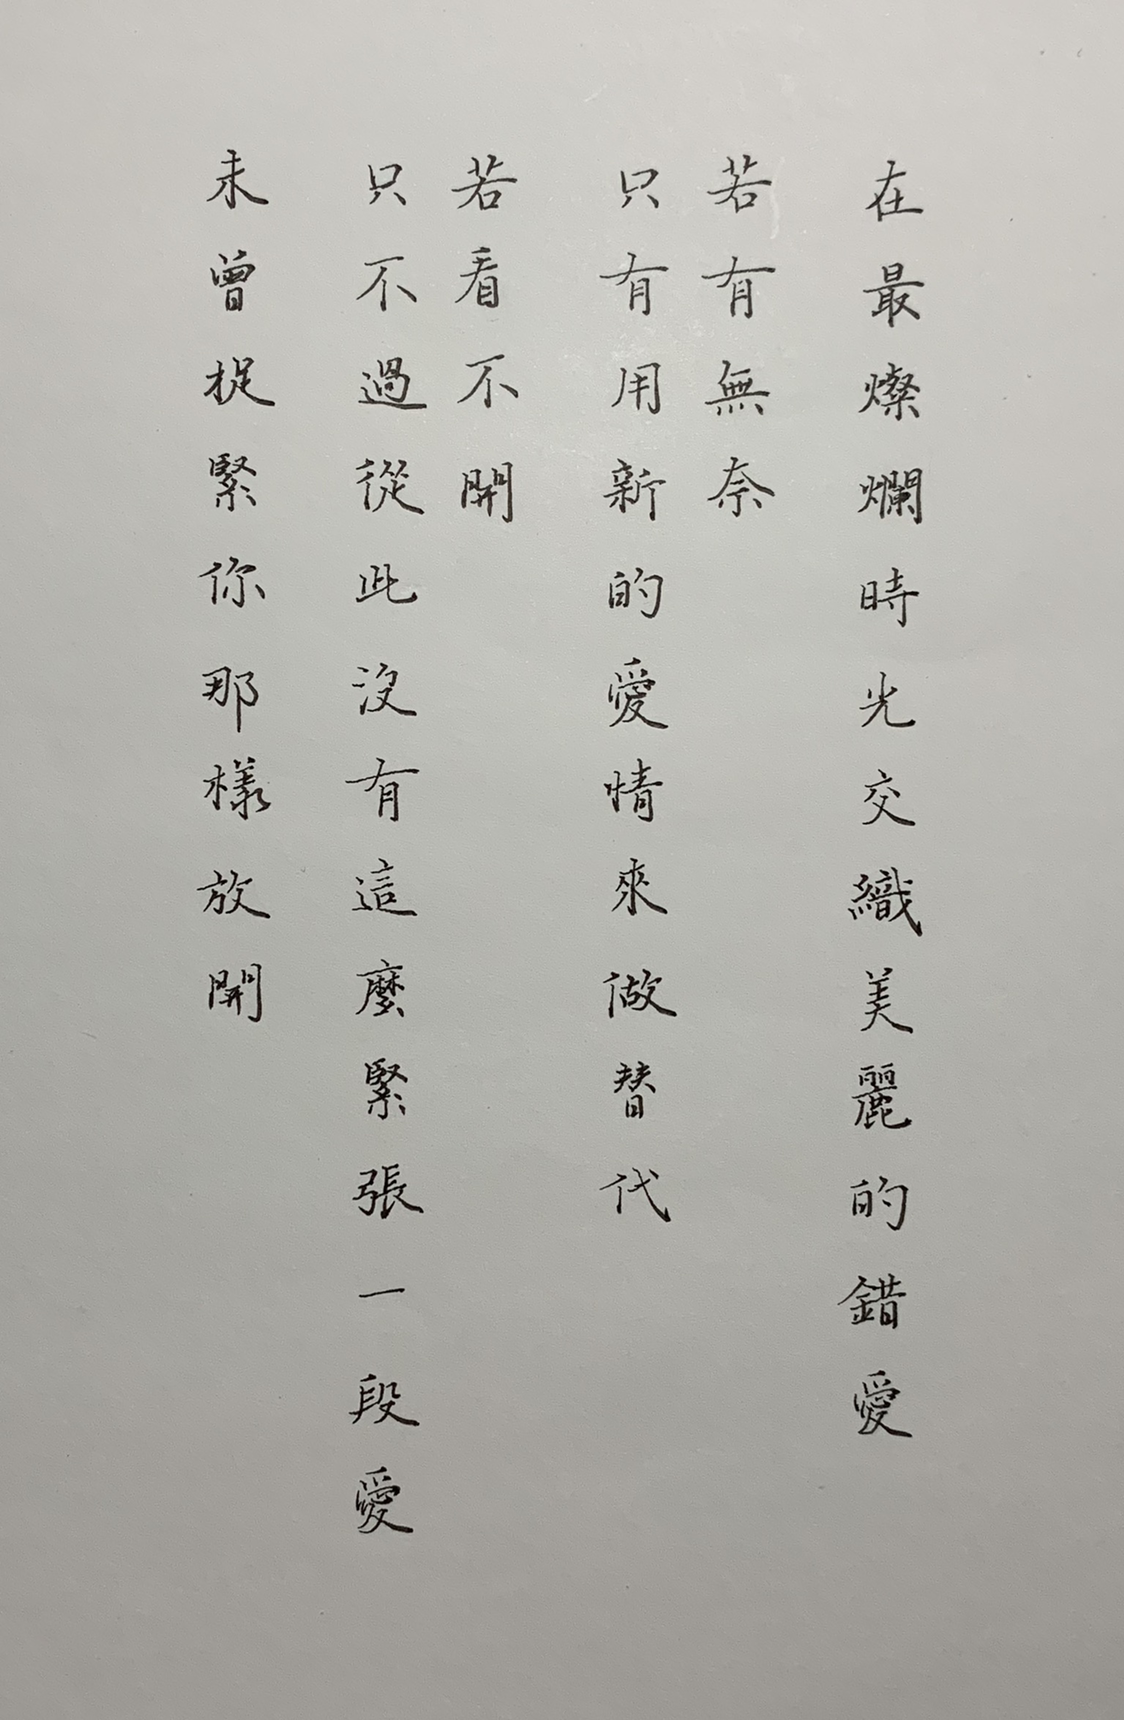 在最燦爛時光交織美麗的錯愛
若有無奈
只有用新的愛情來做替代
若看不開
只不過從此沒有這麼緊張一段愛
未曾捉緊你那樣放開